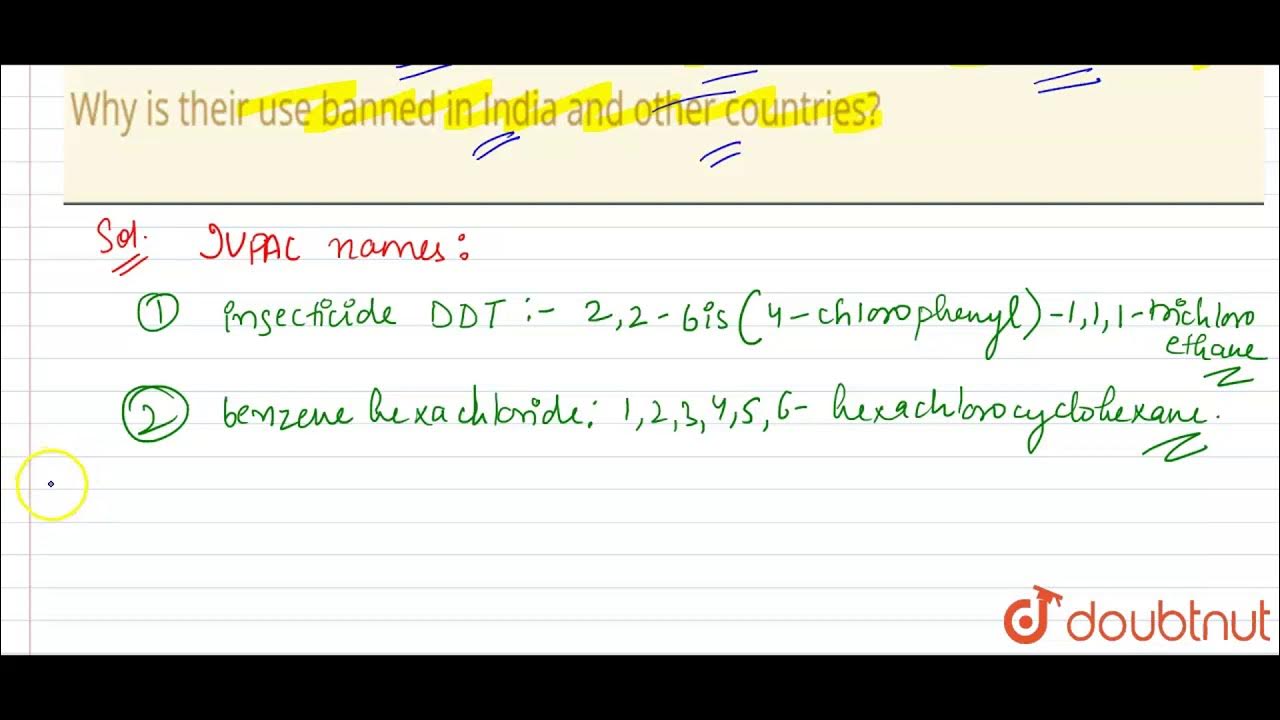 Why is their use banned in India and other countries?
Sol. IUPAC names:
① insecticide DDT :- 2,2-bis(4-chlorophenyl)-1,1,1-trichloro
ethane
② benzene hexachloride: 1,2,3,4,5,6-hexachlorocyclohexane.
doubtnut